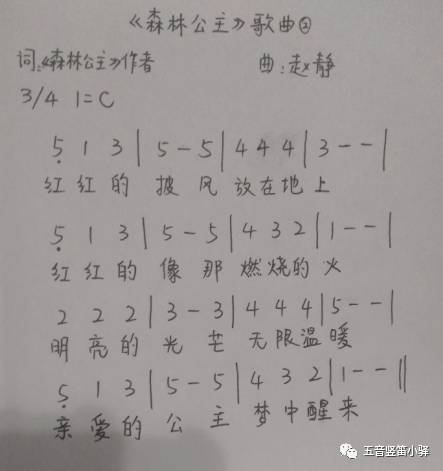 《森林公主》歌曲②
词:《森林公主》作者 曲:赵静
3/4 1=C
5̣ 1 3 | 5 - 5 | 4 4 4 | 3 - - |
红红的披风放在地上
5̣ 1 3 | 5 - 5 | 4 3 2 | 1 - - |
红红的像那燃烧的火
2 2 2 | 3 - 3 | 4 4 4 | 5 - - |
明亮的光芒无限温暖
5̣ 1 3 | 5 - 5 | 4 3 2 | 1 - - ||
亲爱的公主梦中醒来
五音竖笛小驿